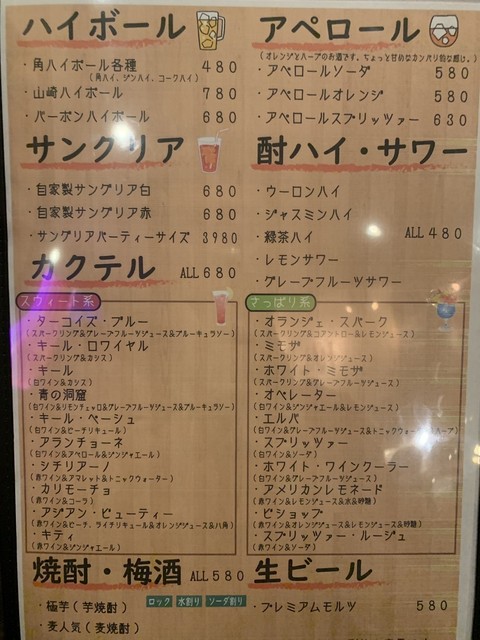 ハイボール
・角ハイボール各種 480
（角ハイ、ジンハイ、コークハイ）
・山崎ハイボール 780
・バーボンハイボール 680
サングリア
・自家製サングリア白 680
・自家製サングリア赤 680
・サングリアパーティーサイズ 3980
アペロール
（オレンジとハーブのお酒です。ちょっと甘めなカンパリ的な感じ。）
・アペロールソーダ 580
・アペロールオレンジ 580
・アペロールスプリッツァー 630
酎ハイ・サワー
・ウーロンハイ
・ジャスミンハイ
・緑茶ハイ ALL480
・レモンサワー
・グレープフルーツサワー
カクテル ALL680
スウィート系
・ターコイズ・ブルー
（スパークリング&グレープフルーツジュース&ブルーキュラソー）
・キール・ロワイヤル
（スパークリング&カシス）
・キール
（白ワイン&カシス）
・青の洞窟
（白ワイン&リモンチェッロ&グレープフルーツジュース&ブルーキュラソー）
・キール・ペーシュ
（白ワイン&ピーチリキュール）
・アランチョーネ
（白ワイン&アペロール&ジンジャエール）
・シチリアーノ
（赤ワイン&アマレット&トニックウォーター）
・カリモーチョ
（赤ワイン&コーラ）
・アジアン・ビューティー
（赤ワイン&ピーチ、ライチリキュール&オレンジジュース&八角）
・キティ
（赤ワイン&ジンジャエール）
さっぱり系
・オランジェ・スパーク
（スパークリング&コアントロー&レモンジュース）
・ミモザ
（スパークリング&オレンジジュース）
・ホワイト・ミモザ
（スパークリング&グレープフルーツジュース）
・オペレーター
（白ワイン&ジンジャエール&レモンジュース）
・エルバ
（白ワイン&グレープフルーツジュース&トニックウォーター&ハーブ）
・スプリッツァー
（白ワイン&ソーダ）
・ホワイト・ワインクーラー
（白ワイン&グレープフルーツジュース）
・アメリカンレモネード
（赤ワイン&レモンジュース&水&砂糖）
・ビショップ
（赤ワイン&オレンジジュース&レモンジュース&砂糖）
・スプリッツァー・ルージュ
（赤ワイン&ソーダ）
焼酎・梅酒 ALL580
ロック 水割り ソーダ割り
・極芋（芋焼酎）
・麦人気（麦焼酎）
生ビール
・プレミアムモルツ 580